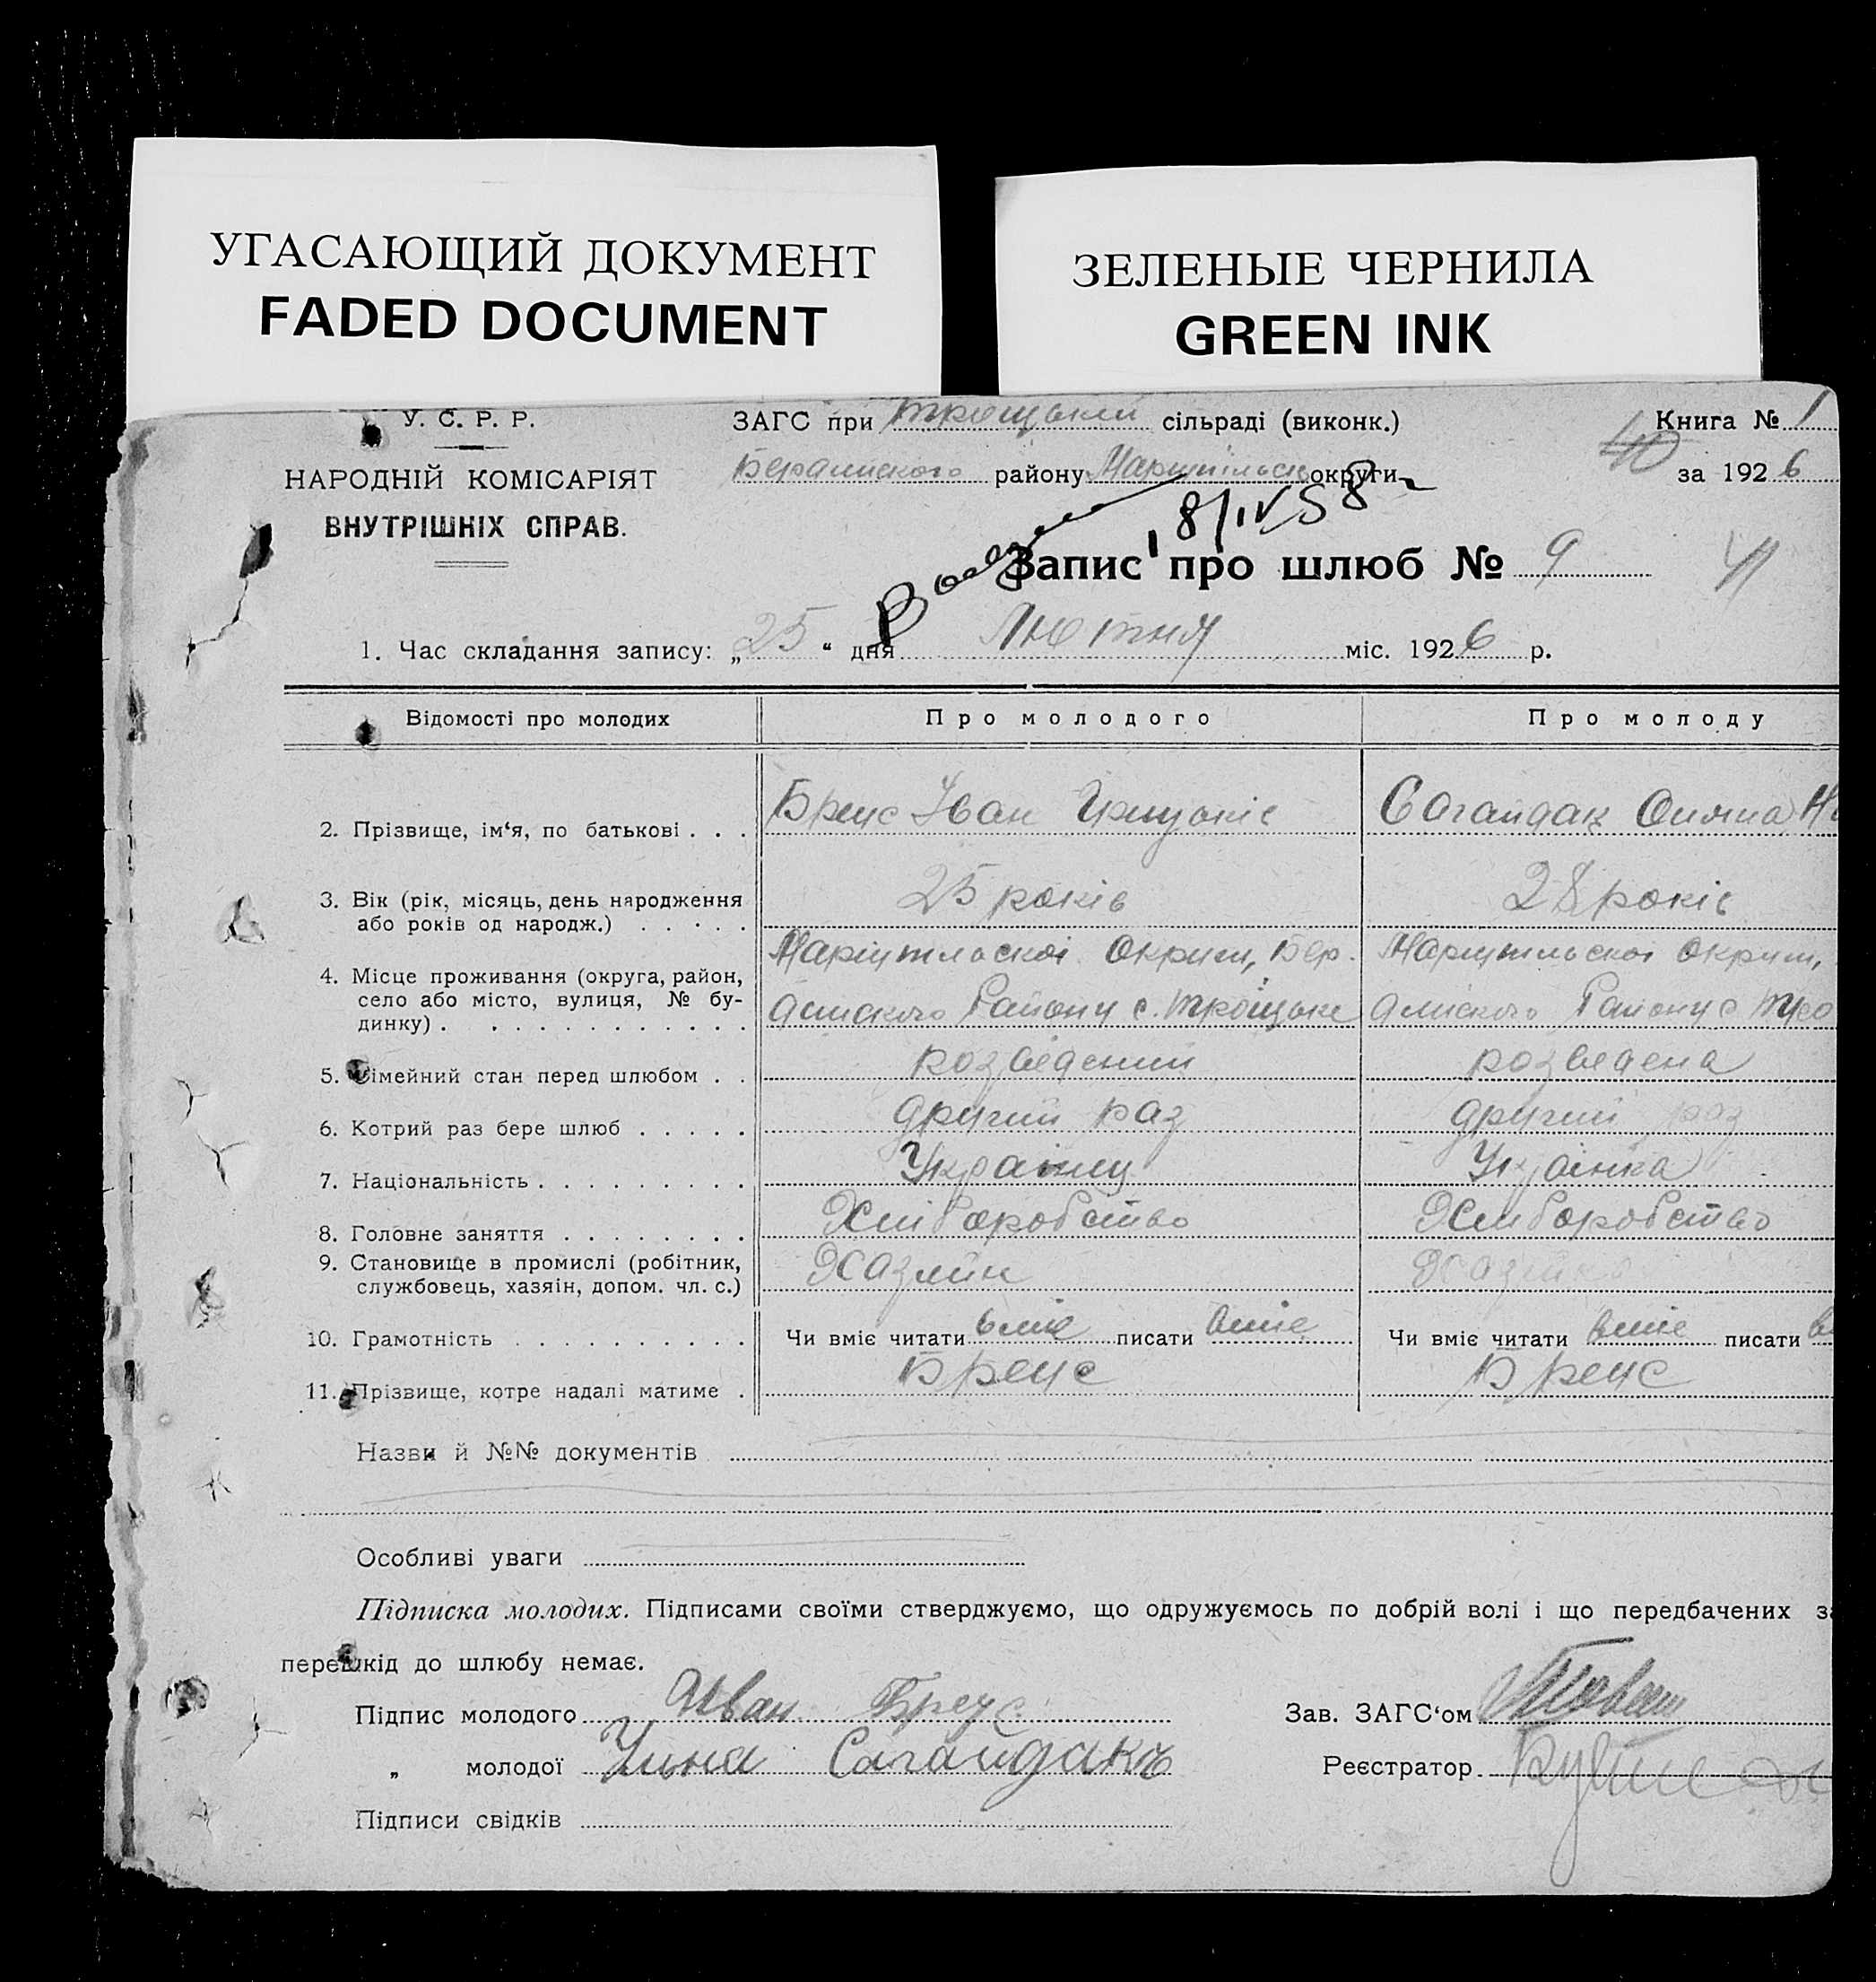 УГАСАЮЩИЙ ДОКУМЕНТ
FADED DOCUMENT
ЗЕЛЕНЫЕ ЧЕРНИЛА
GREEN INK
У. С. Р. Р.
НАРОДНІЙ КОМІСАРІЯТ
ВНУТРІШНІХ СПРАВ.
ЗАГС при Троцькій сільраді (виконк.)
району округи
Книга № 1
40
за 1926
8/IV 58
Запис про шлюб № 9
41
1. Час складання запису: „25“ дня Лютня міс. 1926 р.
Відомості про молодих Про молодого Про молоду
2. Прізвище, ім‘я, по батькові . . . Бреус Іван Сагайдак
3. Вік (рік, місяць, день народження
або років од народж.) . . . . . 25 років 28 років
4. Місце проживання (округа, район, Округи, Бер. Округи,
село або місто, вулиця, № бу-
динку) . . . . . . . . . . . . Району с. Району с.
5. Сімейний стан перед шлюбом . . розведений розведена
6. Котрий раз бере шлюб . . . . . другий раз другий раз
7. Національність . . . . . . . . . Українец Українка
8. Головне заняття . . . . . . . . Хліборобство Хліборобство
9. Становище в промислі (робітник,
службовець, хазяін, допом. чл. с.) Хазяйн
10. Грамотність . . . . . . . . . . Чи вміє читати вміє писати вміє Чи вміє читати вміє писати
11. Прізвище, котре надалі матиме . Бреус Бреус
Назви й №№ документів
Особливі уваги
Підписка молодих. Підписами своїми стверджуємо, що одружуємось по добрій волі і що передбачених
перешкід до шлюбу немає.
Підпис молодого Иван Бреус
Зав. ЗАГС‘ом
„ молодої Сагайдакъ
Реєстратор
Підписи свідків